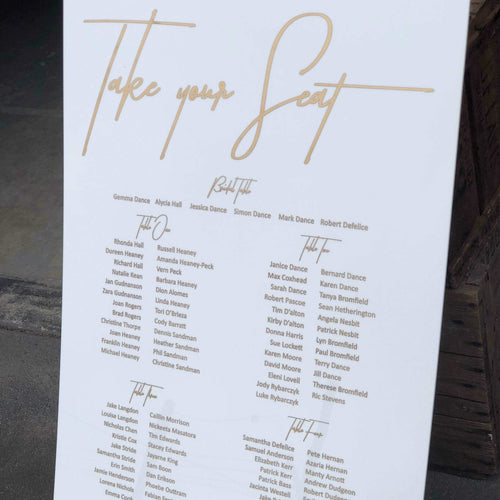 Take your Seat
Bridal Table
Gemma Dance Alycia Hall Jessica Dance Simon Dance Mark Dance Robert Defelice
Table One
Rhonda Hall
Doreen Heaney
Richard Hall
Natalie Kean
Jan Gudnanson
Zara Gudnanson
Joan Rogers
Brad Rogers
Christine Thorpe
Joan Heaney
Franklin Heaney
Michael Heaney
Russell Heaney
Amanda Heaney-Peck
Vern Peck
Barbara Heaney
Dion Alomes
Linda Heaney
Tori O'Brieza
Cody Barratt
Dennis Sandman
Heather Sandman
Phil Sandman
Christine Sandman
Table Two
Janice Dance
Max Coxhead
Sarah Dance
Robert Pascoe
Tim D'alton
Kirby D'alton
Donna Harris
Sue Lockett
Karen Moore
David Moore
Eleni Lovell
Jody Rybarczyk
Luke Rybarczyk
Bernard Dance
Karen Dance
Tanya Bromfield
Sean Hetherington
Angela Nesbit
Patrick Nesbit
Lyn Bromfield
Paul Bromfield
Terry Dance
Jill Dance
Therese Bromfield
Ric Stevens
Table Three
Jake Langdon
Louisa Langdon
Nicholas Chen
Kristie Cox
Jake Stride
Samantha Stride
Erin Smith
Jamie Henderson
Lorena Nichols
Emma
Caitlin Morrison
Nickeeta Masatora
Tim Edwards
Stacey Edwards
Jayarne King
Sam Boon
Dan Erikson
Phoebe Outtram
Fabian
Table Four
Samantha Defelice
Samuel Anderson
Elizabeth Kerr
Patrick Kerr
Patrick Bass
Jacinta Westell
Jake
Pete Hernan
Azaria Hernan
Manty Arnott
Andrew Dudgeon